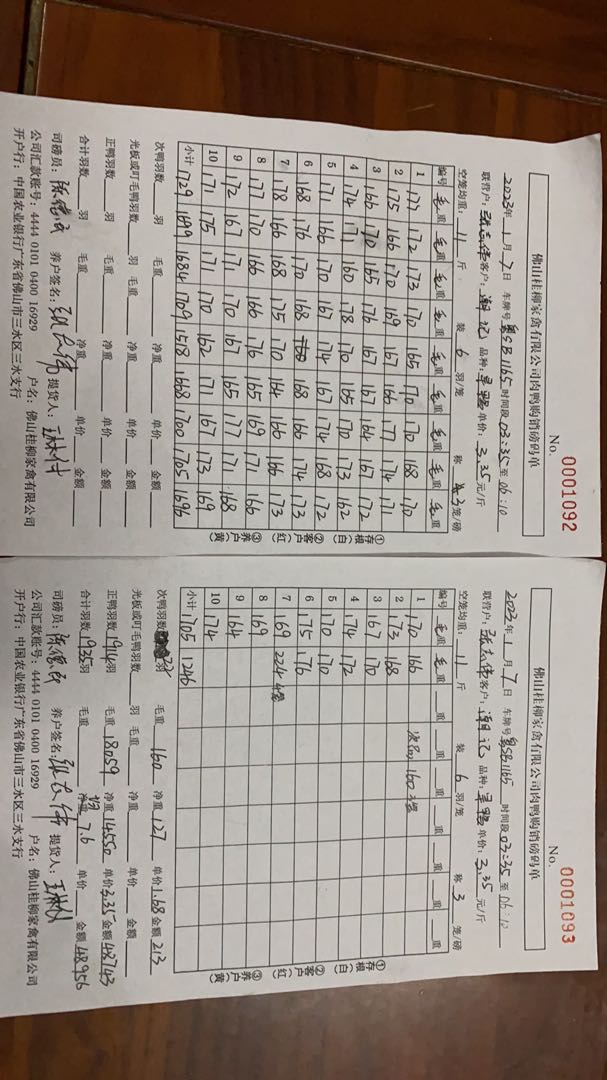 佛山桂柳家禽有限公司肉鸭购销磅码单
No. 0001092
2023年1月7日 车牌号粤SB1165 时间段03:35至06:10
联营户: 客户:潮记 品种: 单价:3.35元/斤
空笼均重:11斤 装6羽/笼 称3笼/磅
编号 毛重 毛重 毛重 毛重 毛重 毛重 毛重 毛重 毛重
1 177 172 173 170 165 170 170 168 170
2 175 166 170 169 167 166 177 174 171
3 166 170 165 176 167 167 164 167 172
4 174 171 160 178 170 165 170 173 162
5 171 166 170 167 174 167 174 168 172
6 168 176 170 168 168 166 174 173
7 178 166 168 175 170 164 166 166 173
8 177 170 166 166 176 165 169 171 166
9 172 167 171 170 167 165 177 171 168
10 171 175 171 170 162 171 167 173 169
小计 1729 1699 1684 1709 1518 1668 1700 1705 1696
①存根(白) ②客户(红) ③养户(黄)
次鸭羽数 羽 毛重 净重 单价 金额
光板或叮毛鸭羽数 羽 毛重 净重 单价 金额
正鸭羽数 羽 毛重 净重 单价 金额
合计羽数 羽 毛重 净重 单价 金额
司磅员: 养户签名: 提货人:
公司汇款账号:4444 0101 0400 16929 户名:佛山桂柳家禽有限公司
开户行:中国农业银行广东省佛山市三水区三水支行
佛山桂柳家禽有限公司肉鸭购销磅码单
No. 0001093
2023年1月7日 车牌号粤SB1165 时间段03:35至06:10
联营户: 客户:潮记 品种: 单价:3.35元/斤
空笼均重:11斤 装6羽/笼 称3笼/磅
编号 毛重 毛重 重 重 重 重 重 重 重
1 170 166 160
2 173 168
3 167 170
4 174 172
5 170 170
6 175 176
7 169 224 4笼
8 169
9 164
10 174
小计 1705 1246
①存根(白) ②客户(红) ③养户(黄)
次鸭羽数 羽 毛重160 净重127 单价1.68 金额213
光板或叮毛鸭羽数 羽 毛重 净重 单价 金额
正鸭羽数1914羽 毛重18059 净重14550 单价3.35 金额48743
合计羽数1935羽 毛重 净重7.6 单价 金额48956
司磅员: 养户签名: 提货人:
公司汇款账号:4444 0101 0400 16929 户名:佛山桂柳家禽有限公司
开户行:中国农业银行广东省佛山市三水区三水支行